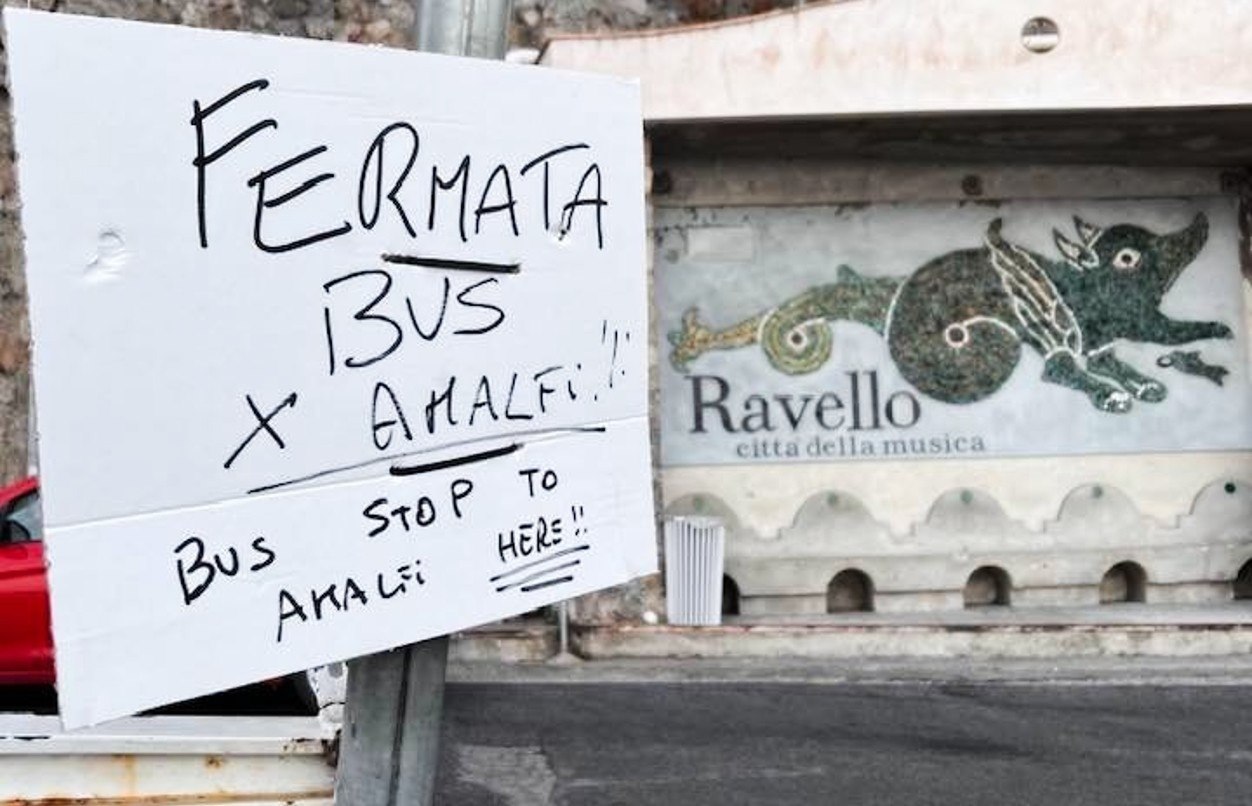 FERMATA
BUS
X AMALFi!!!
BUS STOP TO
AMALFi HERE!!
Ravello
città della musica